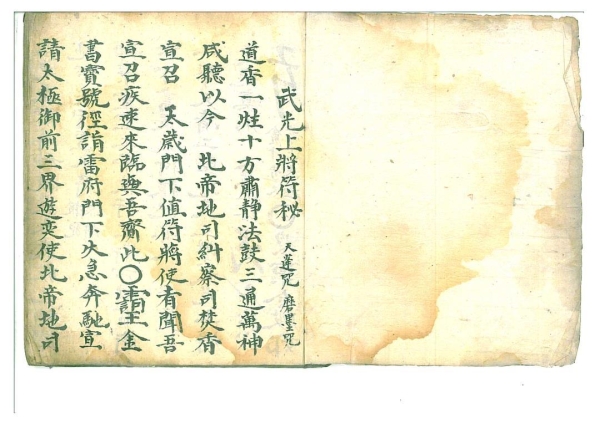 武光上將符秘 天蓬咒 磨墨咒
道香一炷十方肅静法鼓三通萬神
咸聽以今 北帝地司糾察司焚香
宣召 天歲門下值符將使者聞吾
宣召疾速來臨與吾齎此〇謂王金
書寳號徑詣雷府門下火急奔馳宣
請太極御前三界遊奕使北帝地司